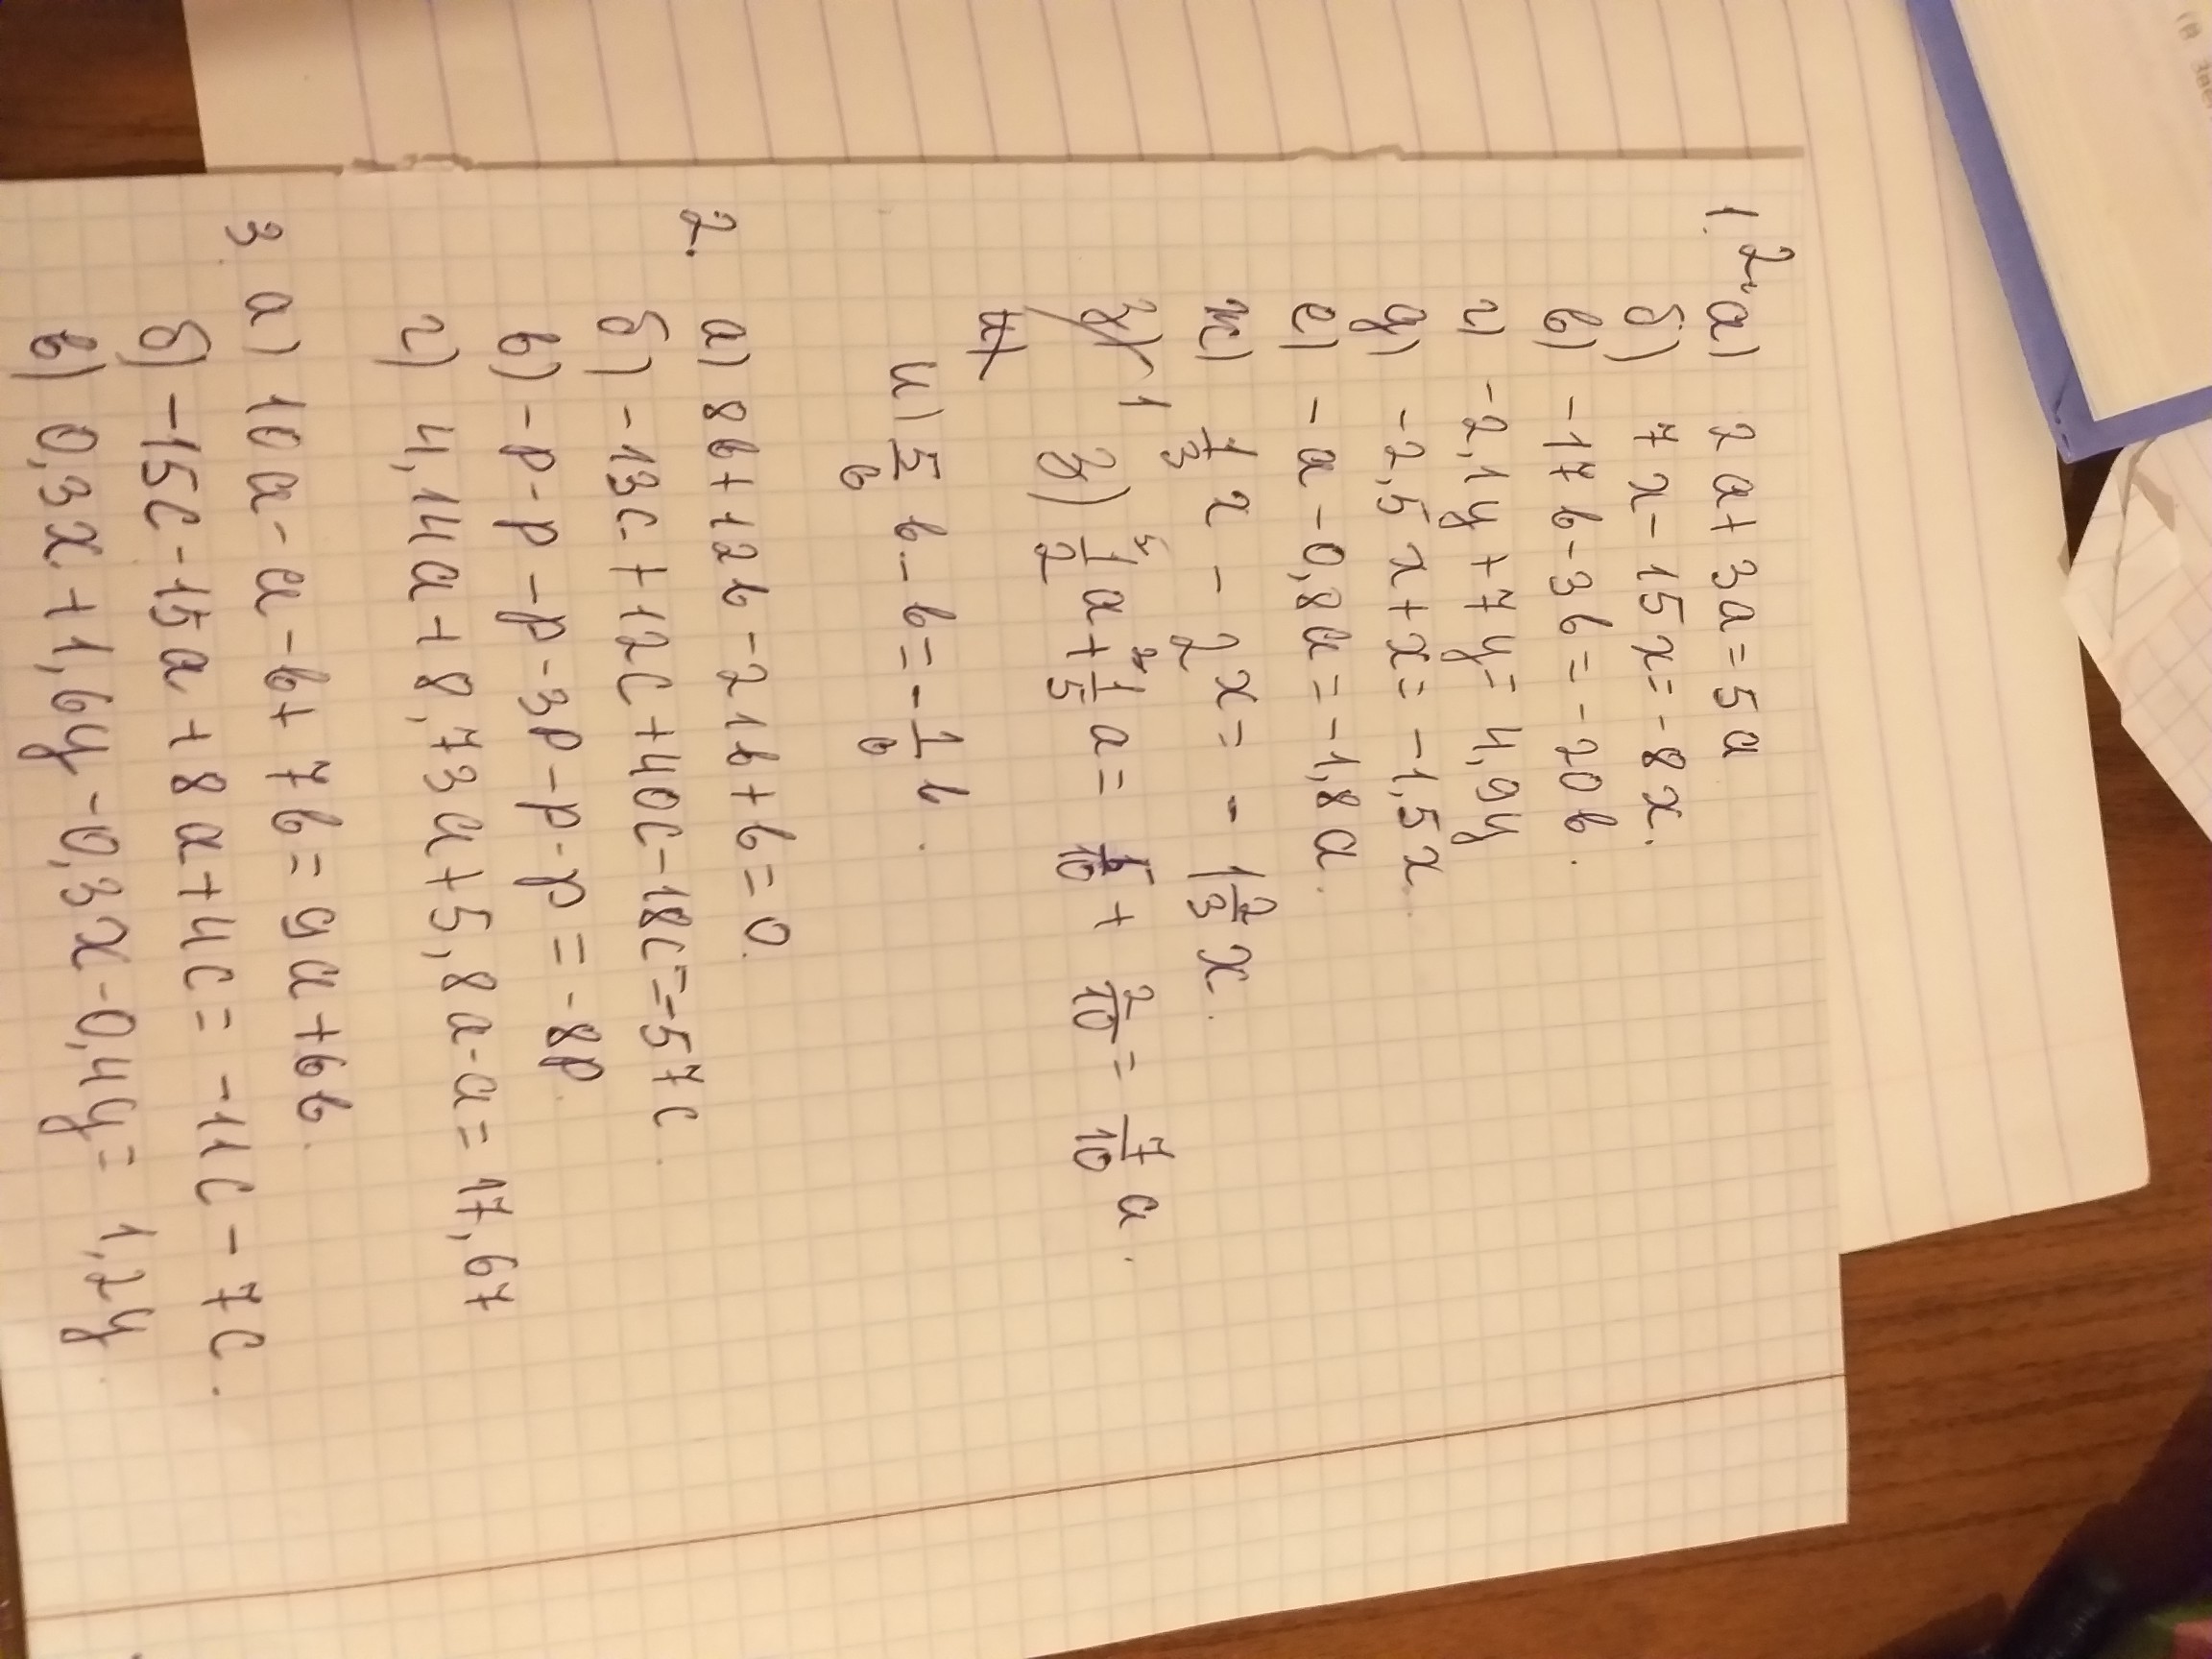 1. 2. а) 2a + 3a = 5a
б) 7x - 15x = -8x.
в) -17b - 3b = -20b.
г) -2,1y + 7y = 4,9y
д) -2,5x + x = -1,5x.
е) -a - 0,8a = -1,8a.
ж) 1/3 x - 2x = - 1 2/3 x.
з) 1/2 a + 1/5 a = 5/10 + 2/10 = 7/10 a.
и) 5/6 b - b = - 1/6 b.
2. а) 8b + 12b - 21b + b = 0.
б) -13c + 12c + 40c - 18c = -57c.
в) -p - p - p - 3p - p - p = -8p
г) 4,14a + 8,73a + 5,8a - a = 17,67
3. а) 10a - a - b + 7b = 9a + 6b.
б) -15c - 15a + 8a + 4c = -11c - 7c.
в) 0,3x + 1,6y - 0,3x - 0,4y = 1,2y